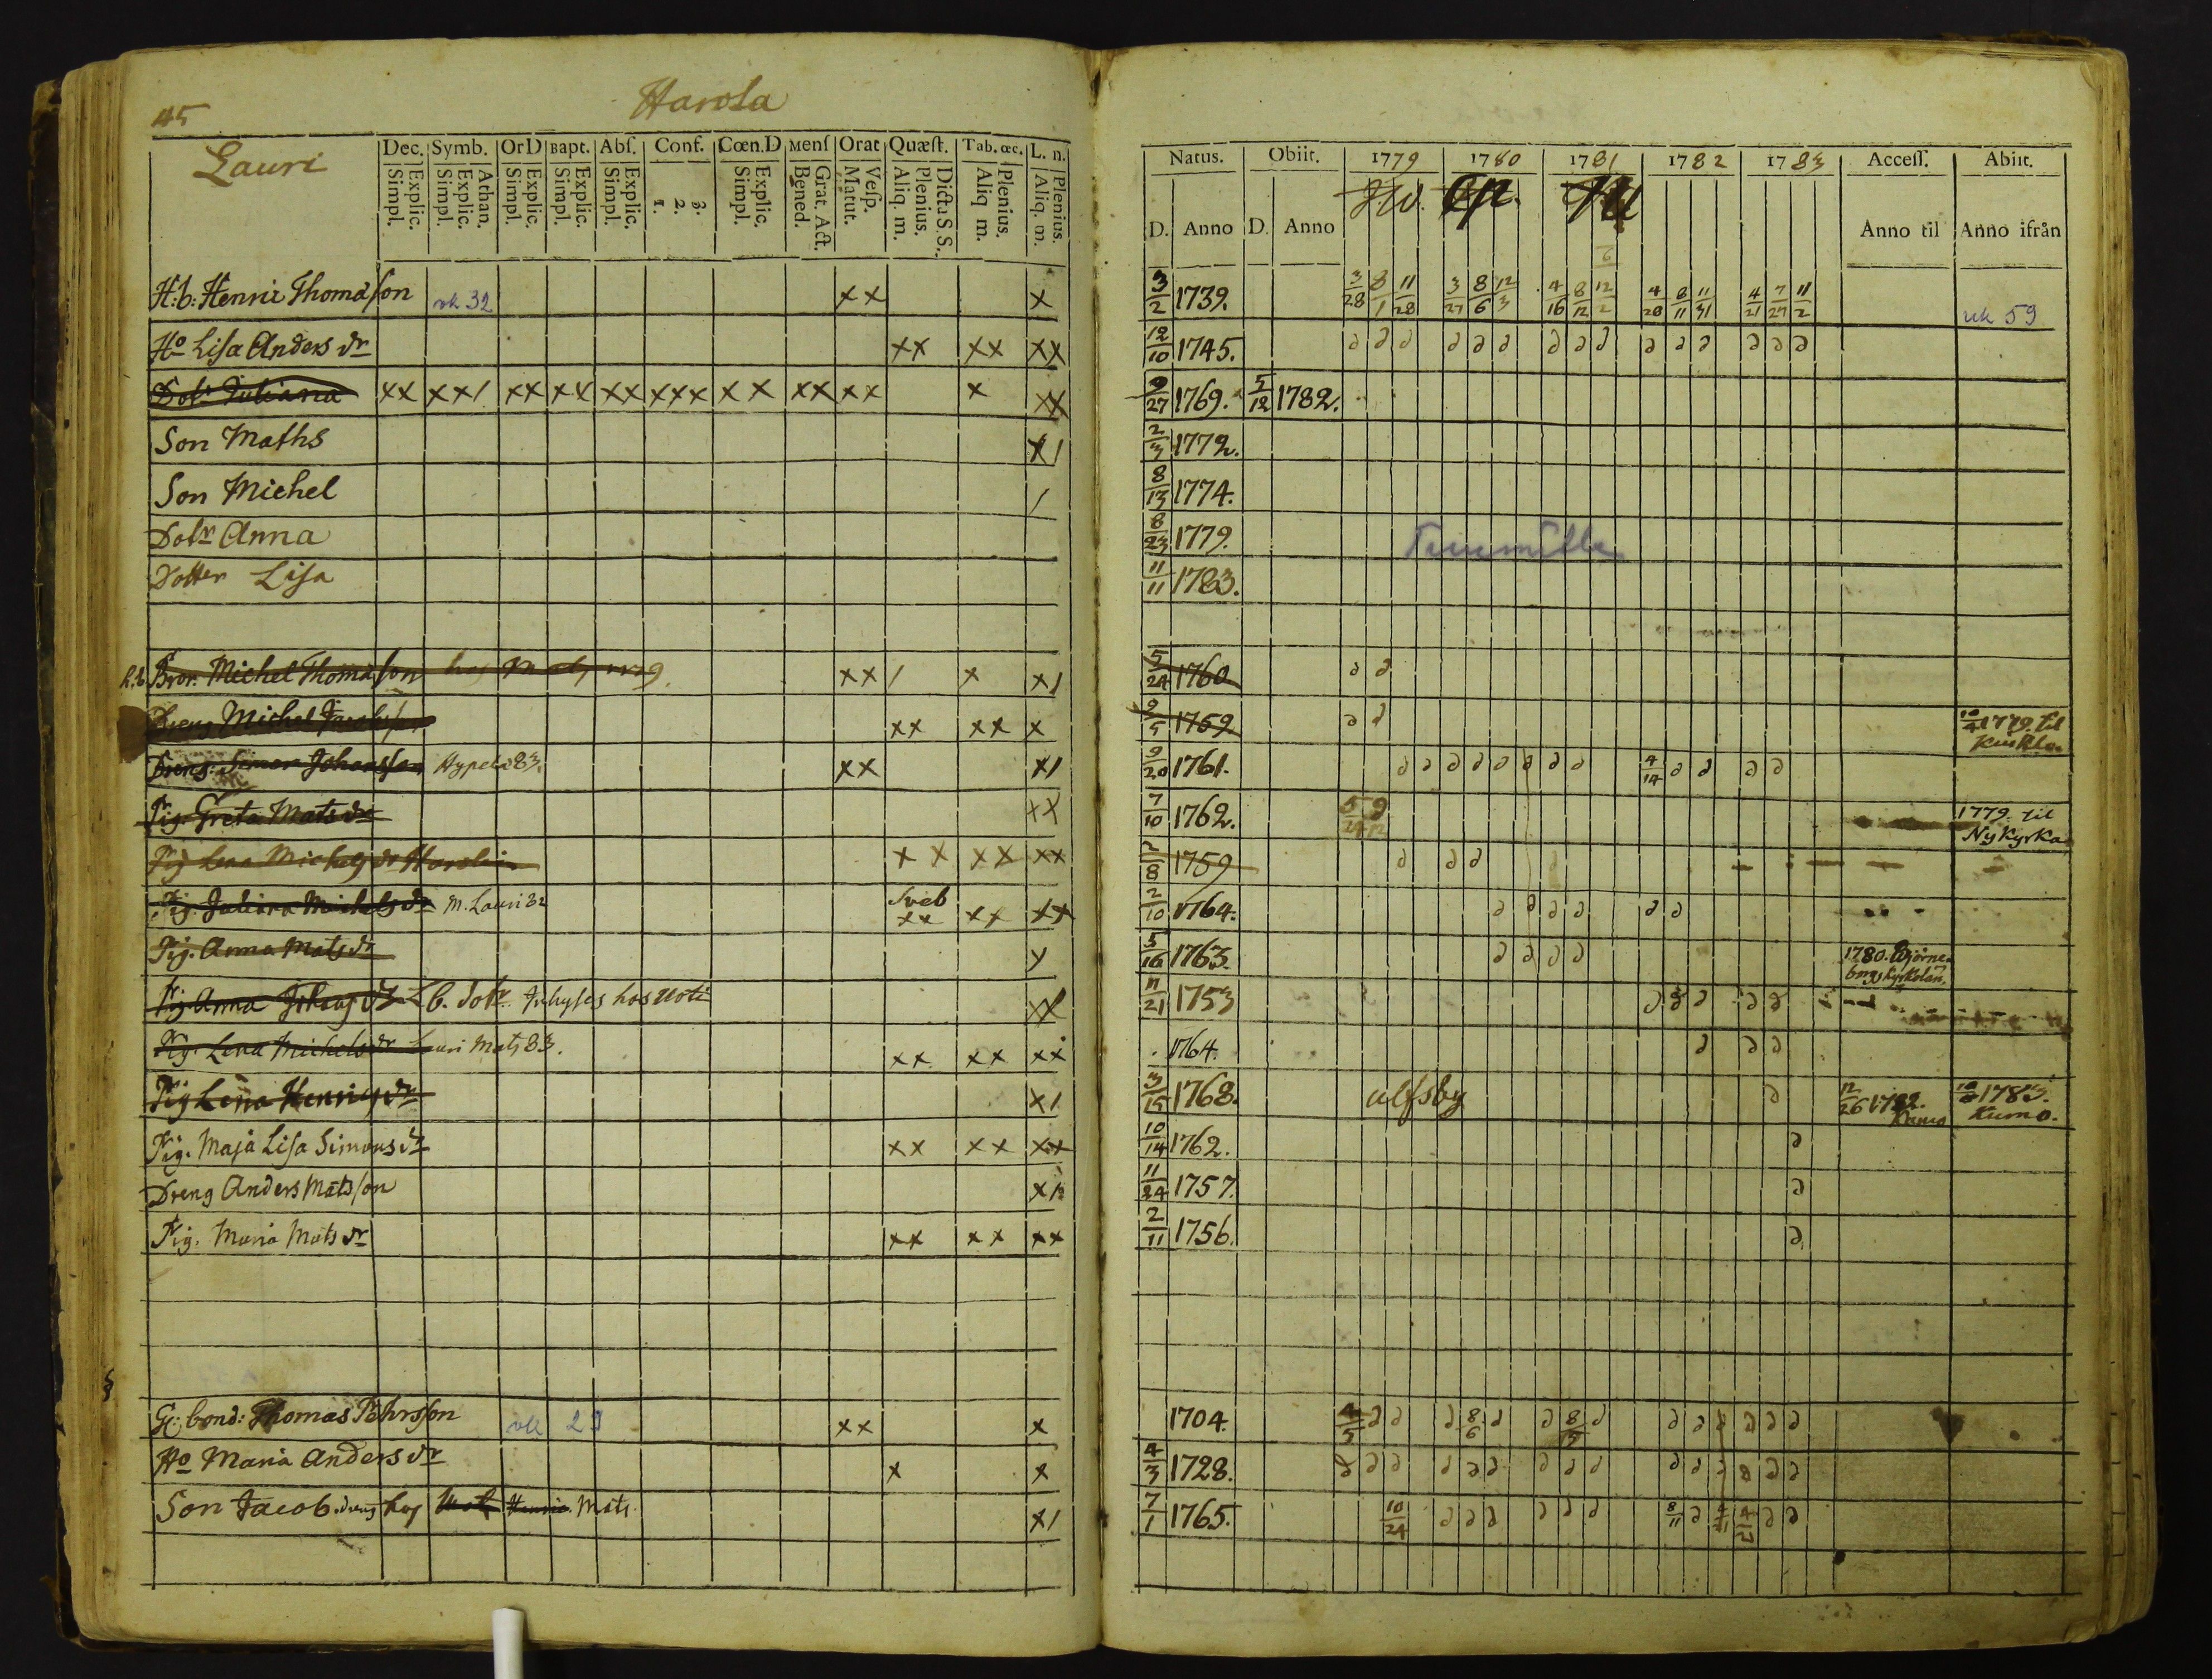 45
Harola
Lauri
Dec. Symb. Or D Bapt. Abſ. Conf. Cœn.D Menſ Orat Quæſt. Tab. œc. L. n.
Explic. Simpl. Athan. Explic. Simpl. Explic. Simpl. Explic. Simpl. Explic. Simpl. 3. 2. 1. Explic. Simpl. Grat. Act. Bened. Veſp. Matut. Dicta S S. Plenius. Aliq. m. Plenius. Aliq m. Plenius. Aliq. m.
H:b: Henric Thomasson 32 xx x
Ho Lisa Anders dr xx xx xx
Dotr Juliana xx xx/ xx xx xx xxx xx xx xx x xx
Son Maths x/
Son Michel /
Dotr Anna
Dotter Lisa
Bror. Michel Thomasson hos Mats 1779. xx / x x/
Dreng Michel Jacobsson xx xx x
Dreng Simon Johansson 83. xx x/
Pig. Greta Mats dr xx
Pig Lena Michels dr xx xx xx
Pig. Juliana Michels dr M. Lauri 82 Sveb xx xx xx
Pig. Anna Mats dr
Pig Anna Johans dr b. dotr Inhyses hos Uoti
Pig. Lena Michels dr Lauri Mats 83. xx xx xx
Pig Lena Henrics dr x/
Pig. Maja Lisa Simons dr xx xx xx
Dreng Anders Matsson x
Pig. Maria Mats dr xx xx xx
G: bond: Thomas Påhrsson xx x
Ho Maria Anders dr x x
Son Jacob dreng hos Henric Mats x/
Natus. Obiit. 1779 1780 1781 1782 1783 Acceſſ. Abiit.
D. Anno D. Anno Anno til Anno ifrån
3/2 1739. 3/28 8/1 11/28 3/27 8/6 12/3 4/16 8/12 12/2 4/28 8/11 4/21 7/27 11/2 59
12/10 1745.
9/27 1769. 5/12 1782.
2/3 1772.
8/13 1774.
8/23 1779.
11/11 1783.
5/24 1760
9/5 1759 1779. til
9/20 1761. 4/14
7/10 1762. 1779. til Nykyrka
2/8 1759
2/10 1764.
5/16 1763. 1780. Björneborgs kyrkolän.
11/21 1753
1764.
3/15 1768. ulfsby 12/26 1782. Kumo 1783. Kumo.
10/14 1762.
11/24 1757.
2/11 1756.
1704. 4/5 8/6 8/15
4/3 1728.
7/1 1765. 10/24 8/11 4/21